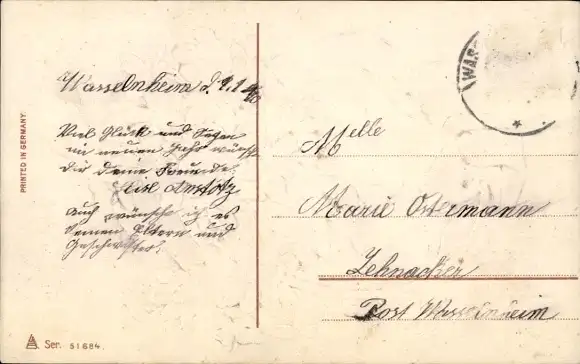 Wasselnheim d. 1.1.
Viel Glück und Segen
im neuen Jahr wünscht
dir deine Freundin
Anstotz
Auch wünsche ich es
deinen Eltern und
Geschwister.
Melle
Marie Ostermann
Zehnacker
Post Wasselnheim
WAS
PRINTED IN GERMANY.
Ser. 51684.